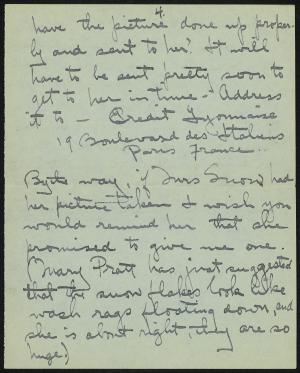 4.
have the picture done up proper-
ly and sent to her. It will
have to be sent pretty soon to
get to her in time - Address
it to - Credit Lyonnaise
19 Boulevard des Italiens
Paris France.
By the way, if Mrs Snow had
her picture taken I wish you
would remind her that she
promised to give me one.
(Mary Pratt has just suggested
that the snow flakes look like
wash rags floating down, and
she is about right, they are so
huge.)